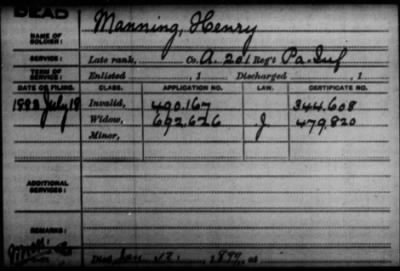 DEAD
Manning, Henry
NAME OF SOLDIER:
SERVICE: Late rank, Co. A. 201 Reg't Pa. Inf
TERM OF SERVICE: Enlisted , 1 Discharged , 1
DATE OF FILING. CLASS. APPLICATION NO. LAW. CERTIFICATE NO.
1883 July 18 Invalid, 490.167 344.608
Widow, 692.626 J 479.820
Minor,
ADDITIONAL SERVICES:
REMARKS:
Died Jan 12, 1899, at